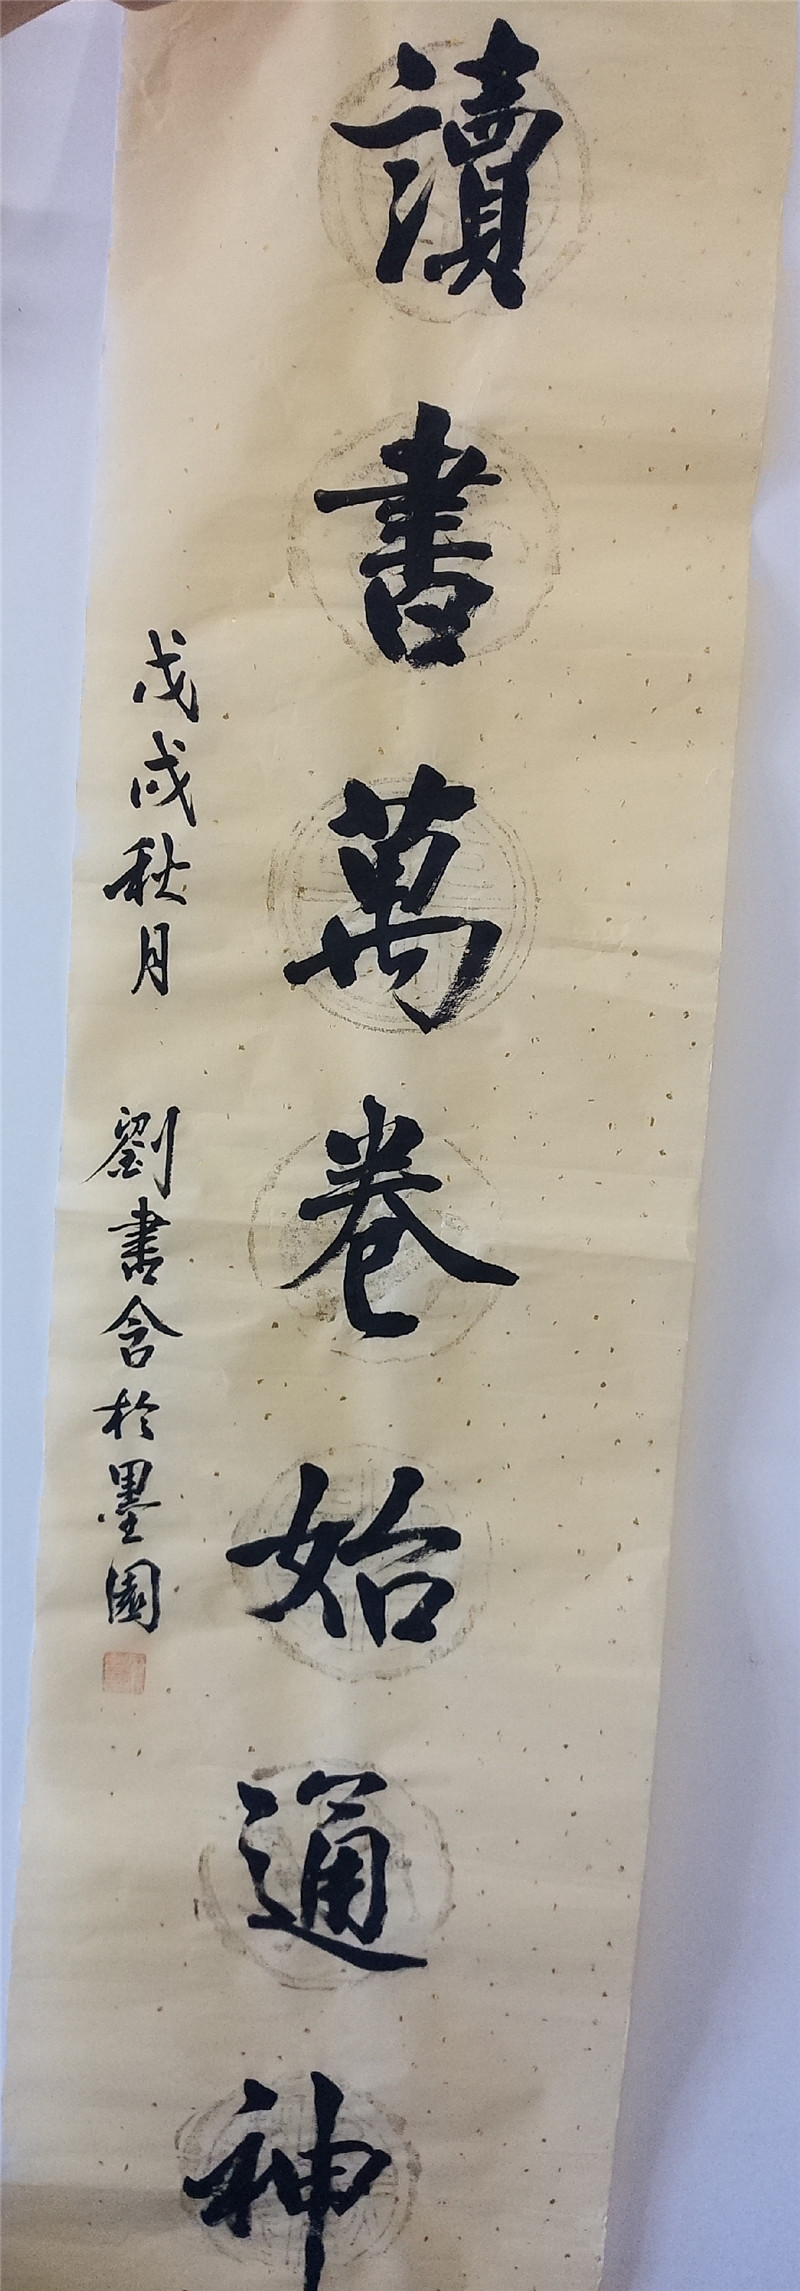 讀書萬卷始通神
戊戌秋月 劉書含於墨園